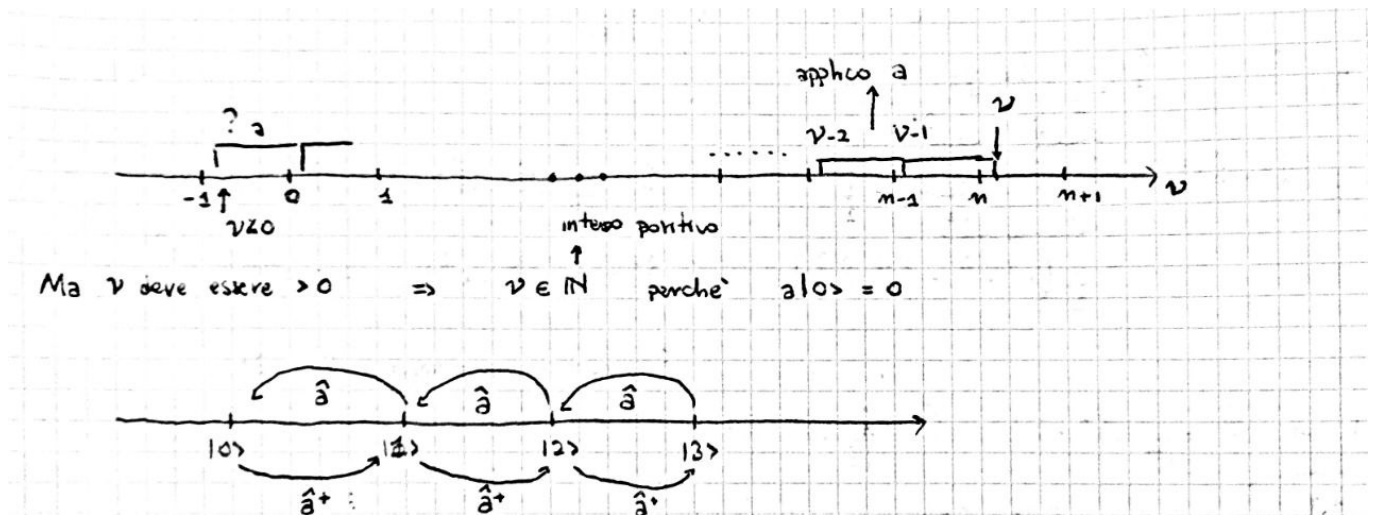 applico a
ν
? a
ν-2 ν-1
......
-1 0 1 n-1 n n+1 ν
ν<0
intero positivo
Ma ν deve essere >0 => ν ∈ ℕ perchè a|0> = 0
â â â
|0> |1> |2> |3>
â⁺ â⁺ â⁺